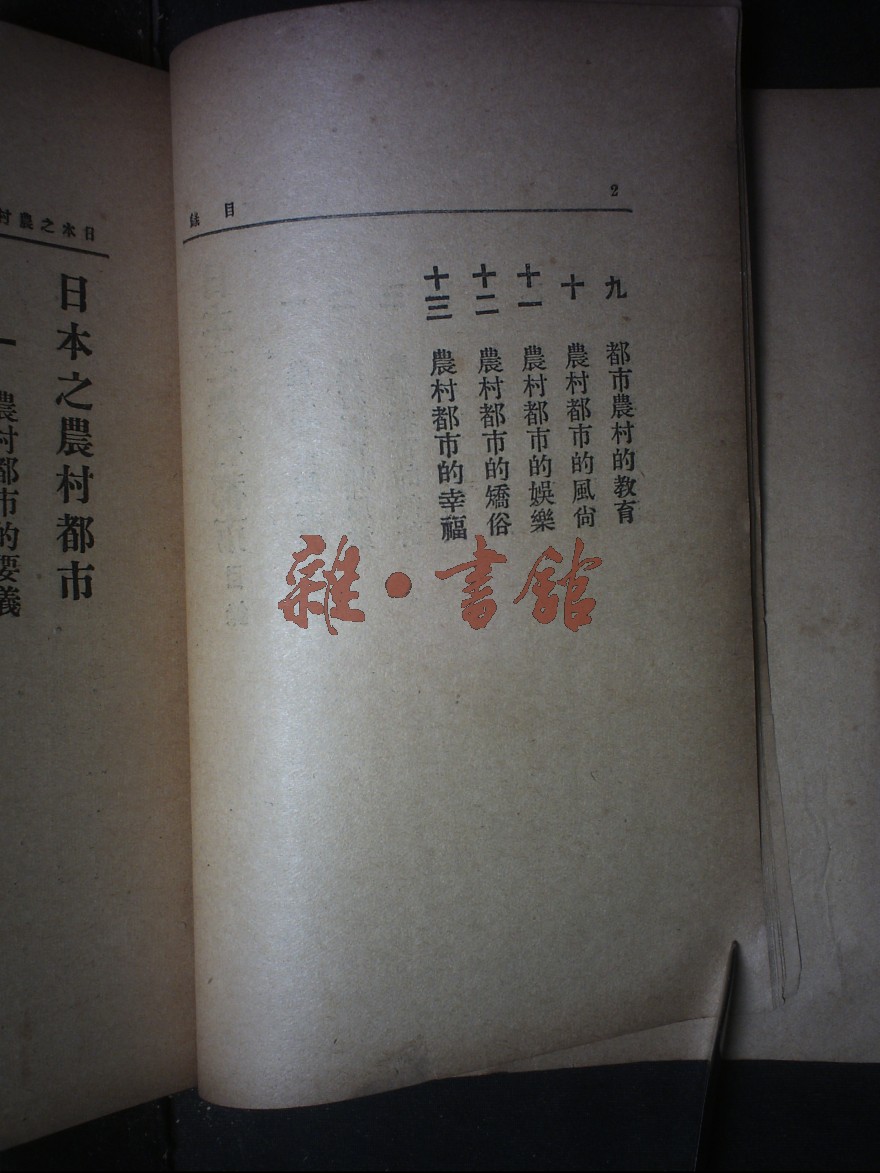 2
目錄
九 都市農村的教育
十 農村都市的風尙
十一 農村都市的娛樂
十二 農村都市的矯俗
十三 農村都市的幸福
雜·書館
日本之農村
日本之農村都市
一 農村都市的要義